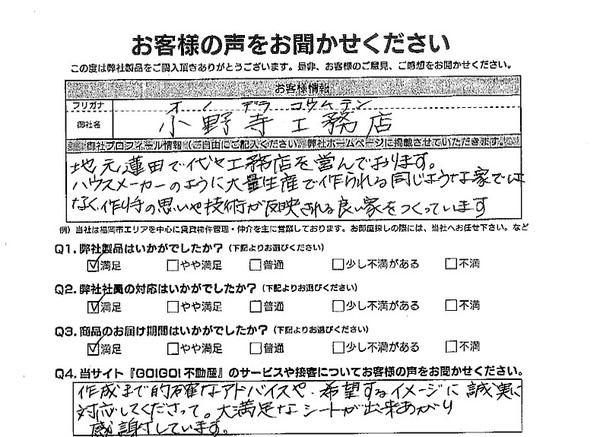 お客様の声をお聞かせください
この度は弊社製品をご購入頂きありがとうございます。是非、お客様のご意見、ご感想をお聞かせください。
お客様情報
フリガナ オノデラ コウムテン
御社名 小野寺工務店
御社プロフィール情報（ご自由にご記入ください。弊社ホームページに掲載させていただきます。
地元蓮田で代々工務店を営んでおります。
ハウスメーカーのように大量生産で作られる同じような家では
なく、作り手の思いや技術が反映される良い家をつくっています
例）当社は福岡市エリアを中心に賃貸物件管理・仲介を主に営業しております。お部屋探しの際には、当社へお任せ下さい。など
Q1. 弊社製品はいかがでしたか？（下記よりお選びください）
☑満足 □やや満足 □普通 □少し不満がある □不満
Q2. 弊社社員の対応はいかがでしたか？（下記よりお選びください）
☑満足 □やや満足 □普通 □少し不満がある □不満
Q3. 商品のお届け期間はいかがでしたか？（下記よりお選びください）
☑満足 □やや満足 □普通 □少し不満がある □不満
Q4. 当サイト『GO!GO!不動産』のサービスや接客についてお客様の声をお聞かせください。
作成まで的確なアドバイスや、希望するイメージに誠実に
対応してくださって。大満足なシートが出来あがり
感謝しています。